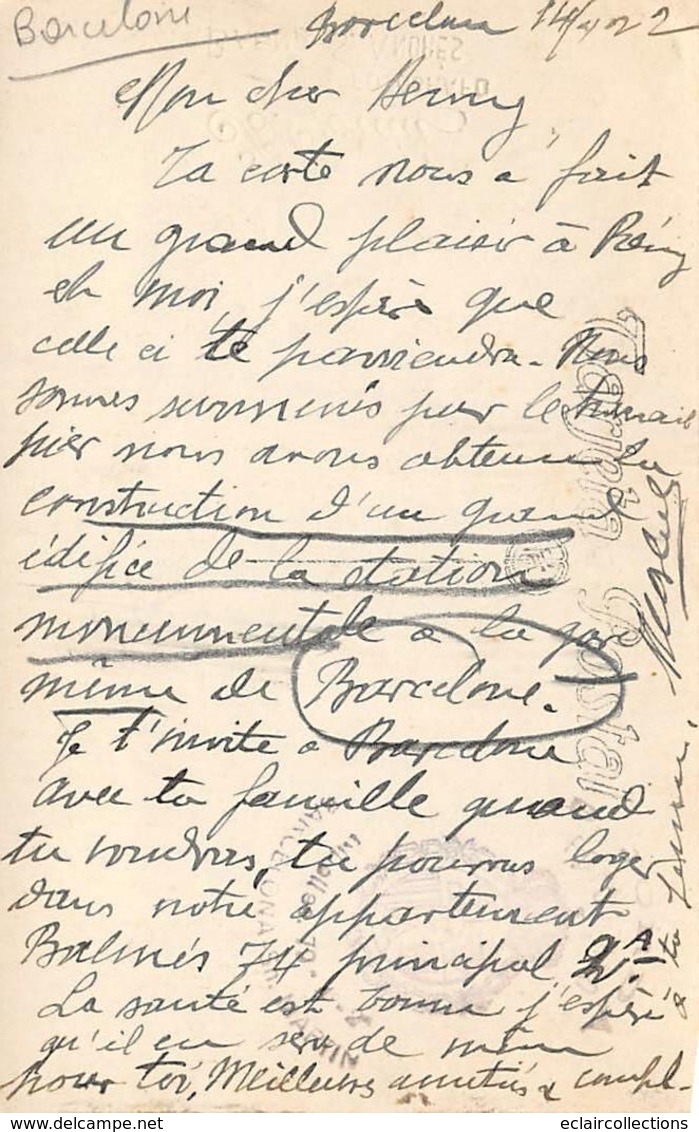 Barcelone
Barcelone 14/ 22
Mon cher Henry
Ta carte nous a fait
un grand plaisir à Rémy
et moi, j'espère que
celle ci te parviendra. Nous
sommes surmenés par le travail
hier nous avons obtenu la
construction d'un grand
édifice de la station
monumentale à la gare
même de Barcelone.
Je t'invite à Barcelone
avec ta famille quand
tu voudras, tu pourras loger
dans notre appartement
Balmés 74 principal 2ª
La santé est bonne j'espère
qu'il en sera de même
pour toi, Meilleures amitiés & compl-
à ta femme.
Tarjeta Postal
BARCELONA
eclaircollections